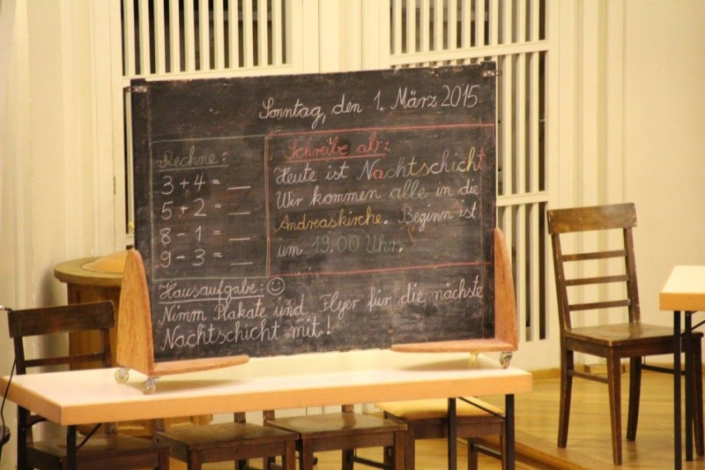 Sonntag, den 1. März 2015
Rechne:
3 + 4 = __
5 + 2 = __
8 - 1 = __
9 - 3 = __
Schreibe ab:
Heute ist Nachtschicht
Wir kommen alle in die
Andreaskirche. Beginn ist
um 19.00 Uhr.
Hausaufgabe: ☺
Nimm Plakate und Flyer für die nächste
Nachtschicht mit!